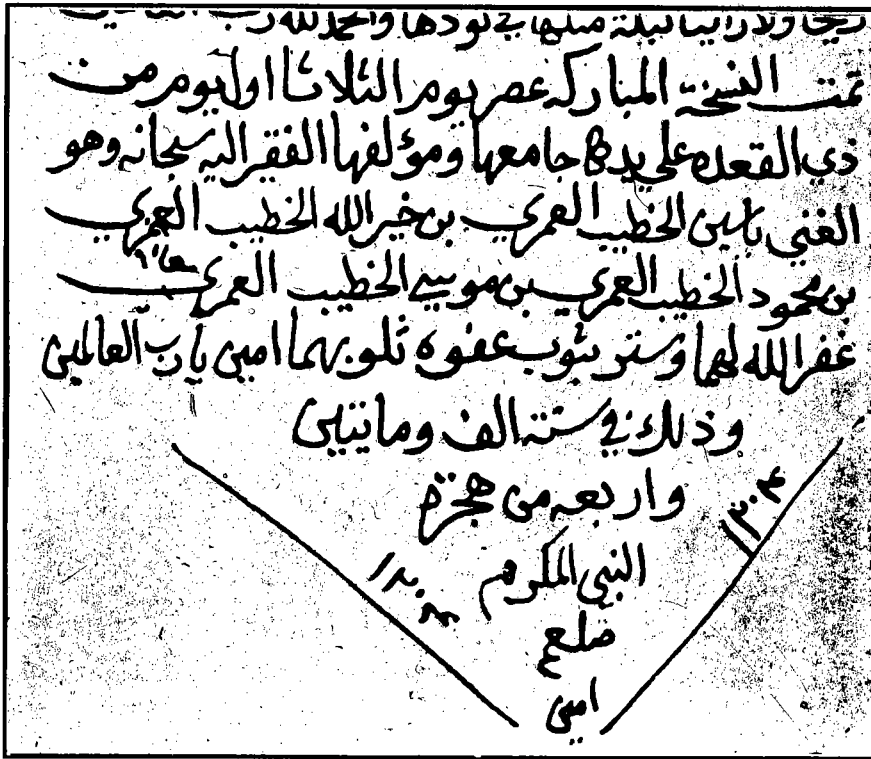 ريحا ولا راينا ليلة مثلها في نودها والحمد لله رب
تمت النسخة المباركه عصر يوم الثلاثا اول يوم من
ذي القعده علي يد جامعها ومؤلفها الفقير اليه سبحانه وهو
الغني ياسين الخطيب العمري بن خير الله الخطيب العمري
بن محمود الخطيب العمري بن موسي الخطيب العمري
غفر الله لهما وستر بثوب عفوه ذلوبهما امين يا رب العالمين
وذلك في سنة الف ومايتين
واربعه من هجرة
١٢٠٤
النبي المكرم
١٢٠٤
صلعم
امين